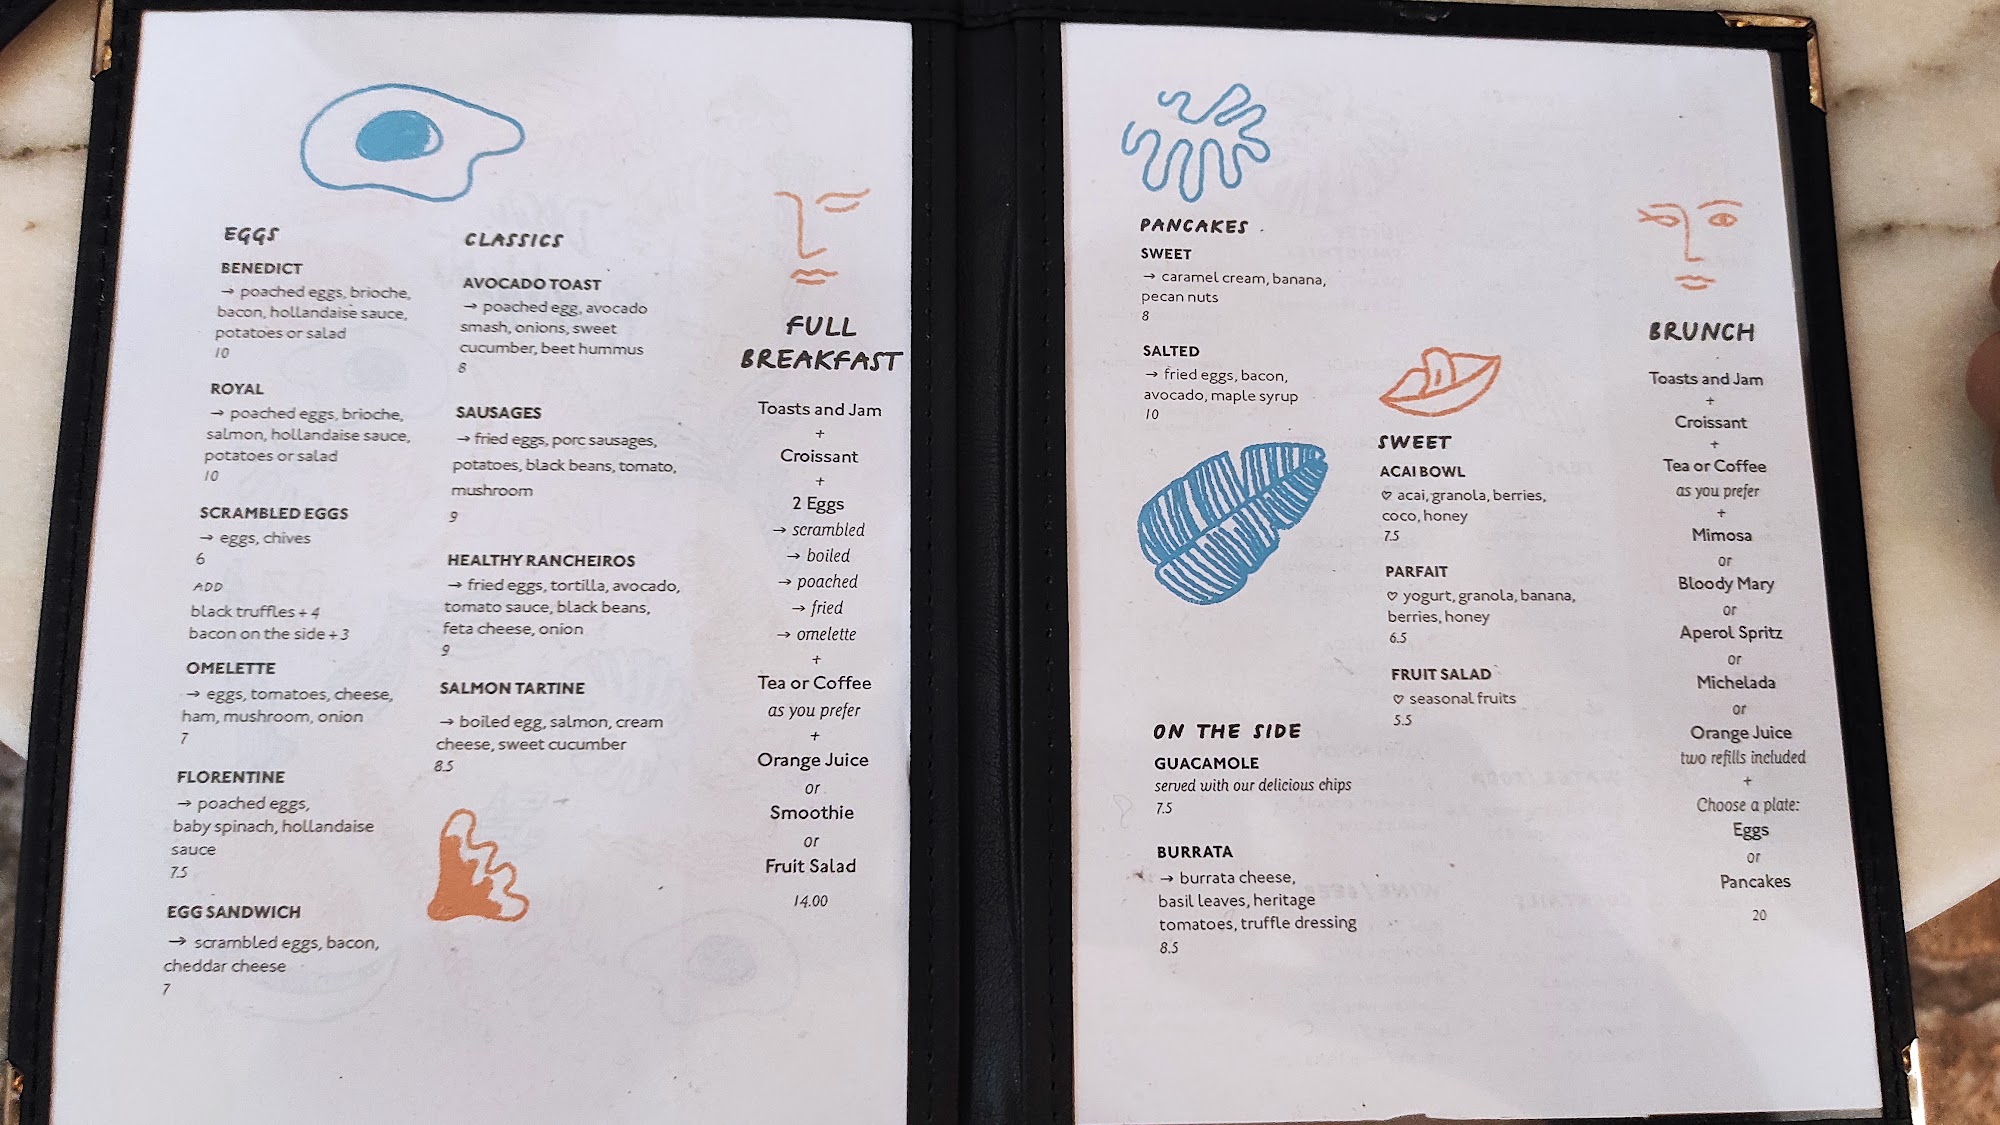 EGGS
BENEDICT
→ poached eggs, brioche,
bacon, hollandaise sauce,
potatoes or salad
10
ROYAL
→ poached eggs, brioche,
salmon, hollandaise sauce,
potatoes or salad
10
SCRAMBLED EGGS
→ eggs, chives
6
ADD
black truffles + 4
bacon on the side + 3
OMELETTE
→ eggs, tomatoes, cheese,
ham, mushroom, onion
7
FLORENTINE
→ poached eggs,
baby spinach, hollandaise
sauce
7.5
EGG SANDWICH
→ scrambled eggs, bacon,
cheddar cheese
7
CLASSICS
AVOCADO TOAST
→ poached egg, avocado
smash, onions, sweet
cucumber, beet hummus
8
SAUSAGES
→ fried eggs, porc sausages,
potatoes, black beans, tomato,
mushroom
9
HEALTHY RANCHEIROS
→ fried eggs, tortilla, avocado,
tomato sauce, black beans,
feta cheese, onion
9
SALMON TARTINE
→ boiled egg, salmon, cream
cheese, sweet cucumber
8.5
FULL
BREAKFAST
Toasts and Jam
+
Croissant
+
2 Eggs
→ scrambled
→ boiled
→ poached
→ fried
→ omelette
+
Tea or Coffee
as you prefer
+
Orange Juice
or
Smoothie
or
Fruit Salad
14.00
PANCAKES
SWEET
→ caramel cream, banana,
pecan nuts
8
SALTED
→ fried eggs, bacon,
avocado, maple syrup
10
SWEET
ACAI BOWL
♡ acai, granola, berries,
coco, honey
7.5
PARFAIT
♡ yogurt, granola, banana,
berries, honey
6.5
FRUIT SALAD
♡ seasonal fruits
5.5
ON THE SIDE
GUACAMOLE
served with our delicious chips
7.5
BURRATA
→ burrata cheese,
basil leaves, heritage
tomatoes, truffle dressing
8.5
BRUNCH
Toasts and Jam
+
Croissant
+
Tea or Coffee
as you prefer
+
Mimosa
or
Bloody Mary
or
Aperol Spritz
or
Michelada
or
Orange Juice
two refills included
+
Choose a plate:
Eggs
or
Pancakes
20